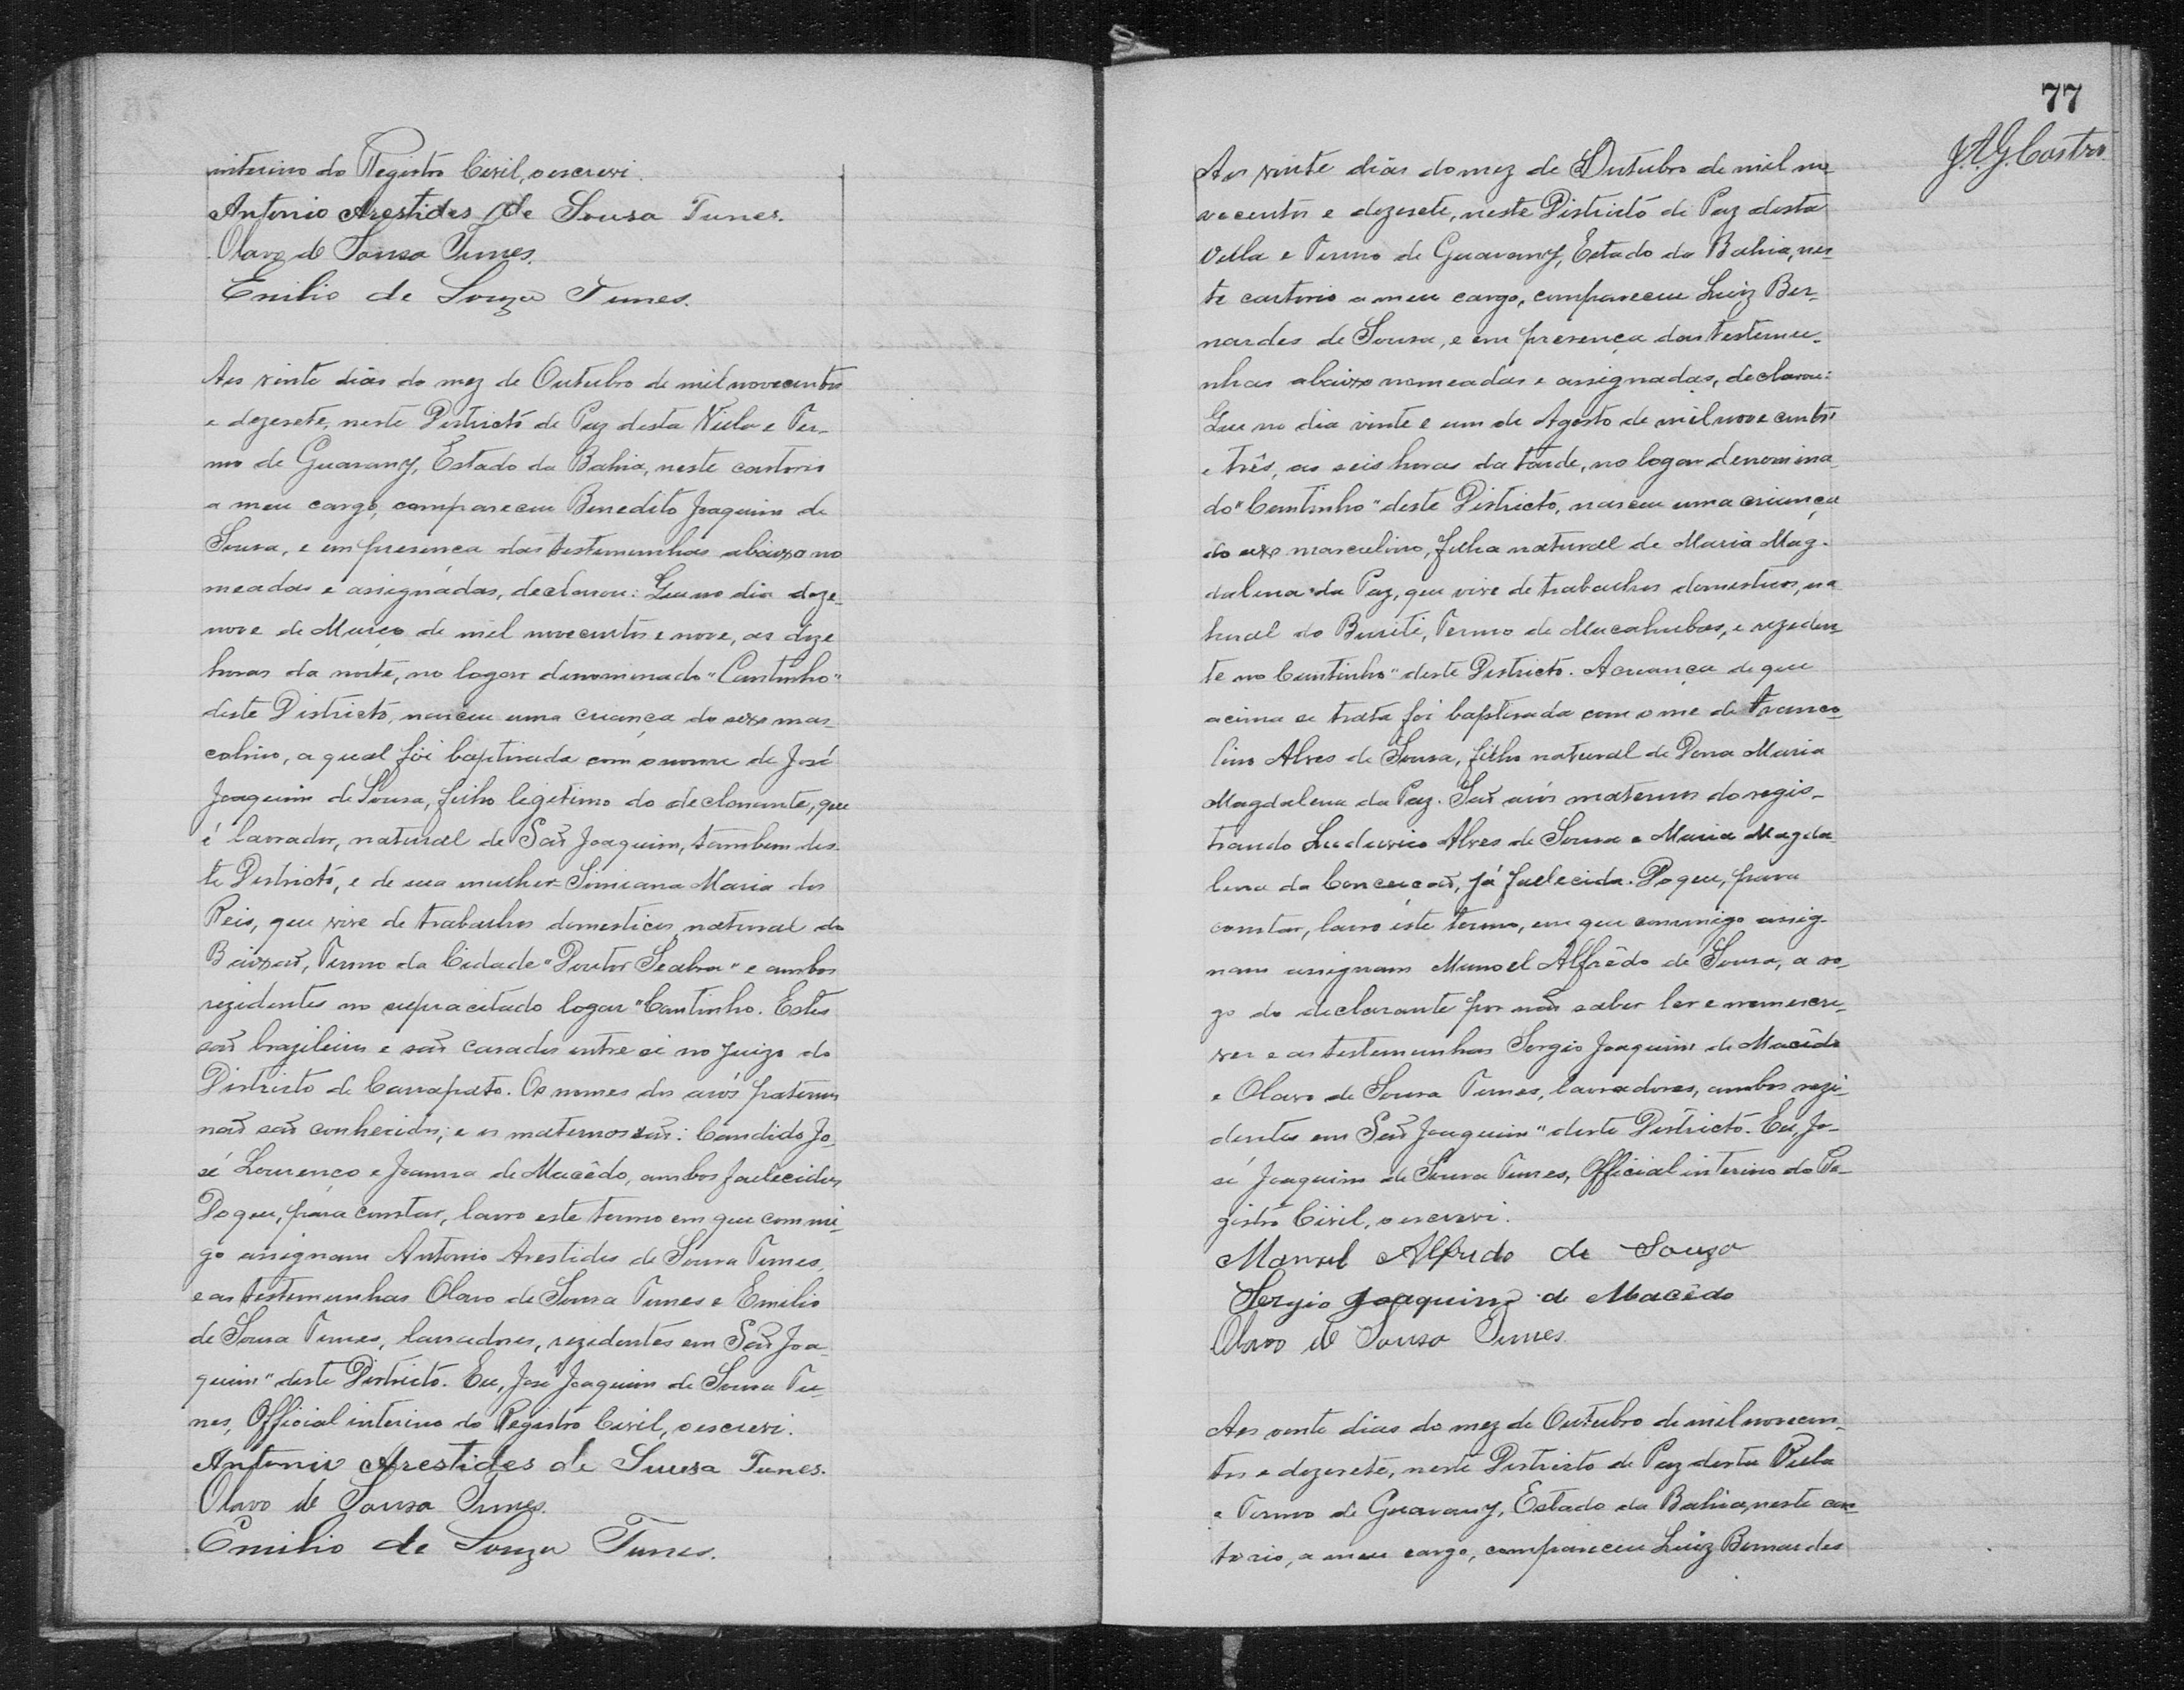 interino do Registro Civil, o escrevi.
Antonio Arestides de Sousa Tunes.
Olavo de Sousa Tunes.
Emilio de Souza Tunes.
Aos vinte dias do mez de Outubro de mil novecentos
e dezesete, neste Districto de Paz desta Villa e Ter-
mo de Guarany, Estado da Bahia, neste cartorio
a meu cargo, compareceu Benedito Joaquim de
Sousa, e em presença das testemunhas abaixo no
meadas e assignadas, declarou: Que no dia deze-
nove de Março de mil novecentos e nove, as doze
horas da noite, no logar denominado "Cantinho"
deste Districto, nasceu uma criança do sexo mas-
colino, a qual foi baptisada com o nome de José
Joaquim de Sousa, filho legitimo do declarante, que
é lavrador, natural de São Joaquim, tambem des-
te Districto, e de sua mulher Simiana Maria dos
Reis, que vive de trabalhos domesticos, natural do
Baixão, Termo da Cidade "Doutor Seabra" e ambos
rezidentes no supracitado logar "Cantinho. Estes
são brazileiros e são casados entre si no Juizo do
Districto de Carrapato. Os nomes dos avós paternos
não são conhecidos; e os maternos são: Candido Jo-
sé Lourenço e Joanna de Macêdo, ambos fallecidos
Do que, para constar, lavro este termo em que commi-
go assignam Antonio Arestides de Sousa Tunes,
e as testemunhas Olavo de Sousa Tunes e Emilio
de Sousa Tunes, lavradores, rezidentes em São Joa-
quim" deste Districto. Eu, José Joaquim de Sousa Tu-
nes, Official interino do Registro Civil, o escrevi.
Antonio Arestides de Sousa Tunes.
Olavo de Sousa Tunes.
Emilio de Souza Tunes.
77
J.A.G. Castro
Aos vinte dias do mez de Outubro de mil no-
vecentos e dezesete, neste Districto de Paz desta
Villa e Termo de Guarany, Estado da Bahia, nes-
te cartorio a meu cargo, compareceu Luiz Ber-
nardes de Sousa, e em presença das testemu-
nhas abaixo nomeadas e assignadas, declarou:
Que no dia vinte e um de Agosto de mil novecentos
e três, as seis horas da tarde, no logar denomina-
do "Cantinho" deste Districto, nasceu uma criança
do sexo masculino, filha natural de Maria Mag-
dalena da Paz, que vive de trabalhos domesticos, na
tural do Buriti, Termo de Macahubas, e rezeden-
te no Cantinho" deste Districto. A creança de que
acima se trata foi baptisada com o me de Franco-
lino Alves de Sousa, filho natural de Dona Maria
Magdalena da Paz. São avós maternos do regis-
trando Ludovico Alves de Sousa e Maria Magda-
lena da Conceição, já fallecida. Do que, para
constar, lavro este termo, em que commigo assig-
nam assignam Manoel Alfrêdo de Sousa, a ro-
go do declarante por não saber ler e nem escre-
ver e as testemunhas Sergio Joaquim de Macêdo
e Olavo de Sousa Tunes, lavradores, ambos rezi-
dentes em São Joaquim" deste Districto. Eu, Jo-
sé Joaquim de Sousa Tunes, Official interino do Re-
gistro Civil, o escrevi.
Manoel Alfredo de Souza
Sergio Joaquim de Macêdo
Olavo de Sousa Tunes.
Aos vente dias do mez de Outubro de mil novecen-
tos e dezesete, neste Districto de Paz desta Villa
e Termo de Guarany, Estado da Bahia, neste car-
torio, a meu cargo, compareceu Luiz Bernardes